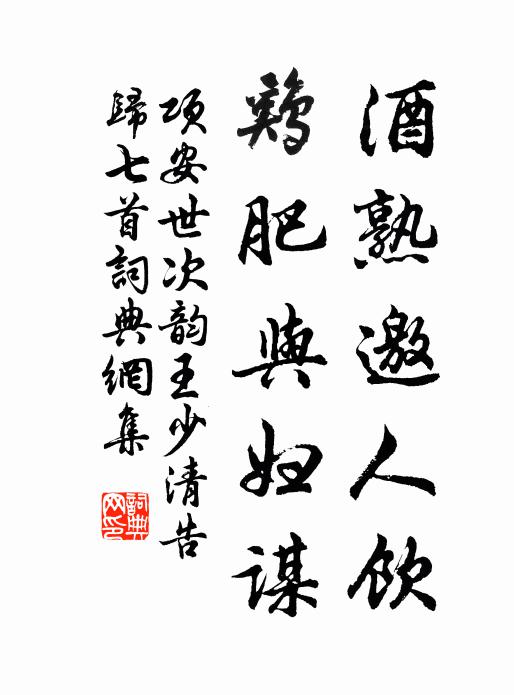 酒熟邀人飲
鷄肥與妇謀
項安世次韵王少清告
歸七首詞典網集
詞典
网印